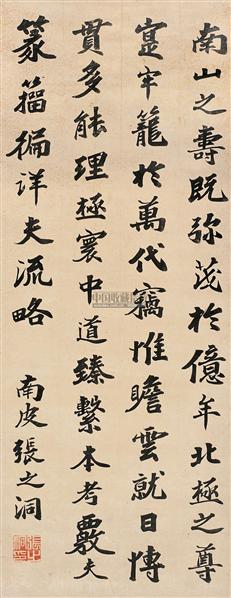 南山之壽既弥茂於億年北極之尊
寔牢籠於萬代竊惟瞻雲就日博
貫多能理極寰中道臻繫本考覈夫
篆籀徧详夫流略
南皮張之洞
中国收藏